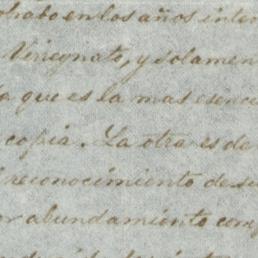 trabo en los años inter
Vireynato, y solamen
a que es la mas esenc
copia. La otra es de
reconocimiento de su
or abundamiento com